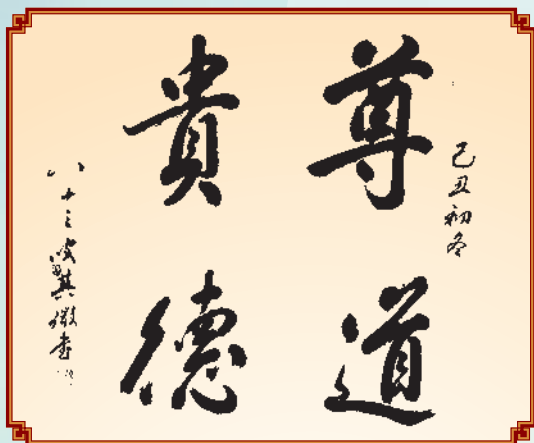 己丑初冬
尊道
貴德
八十三